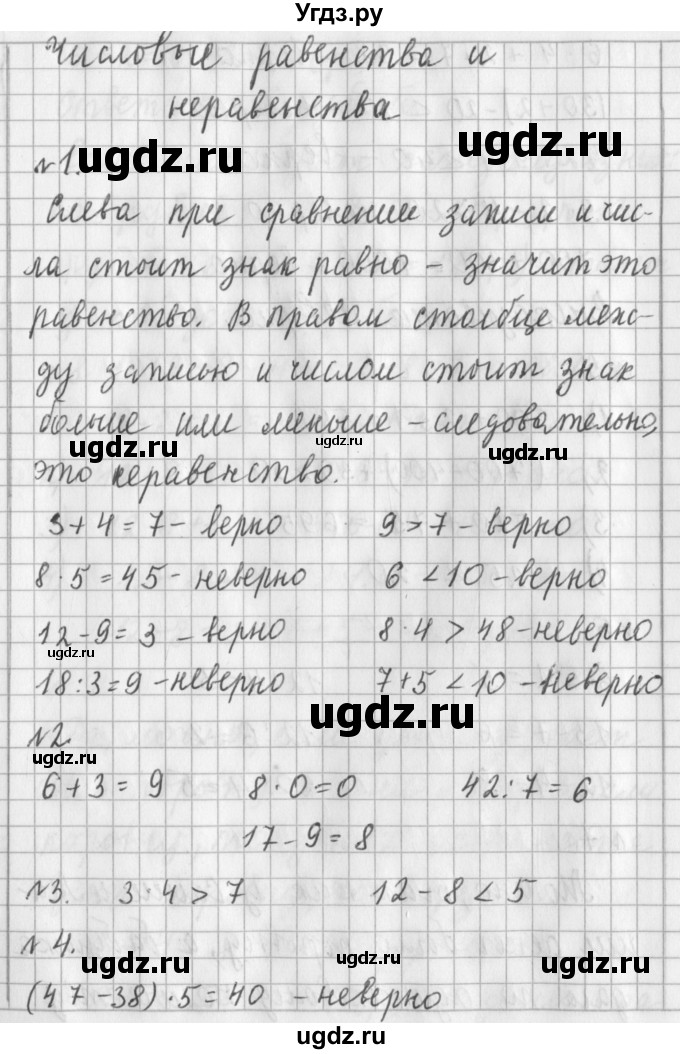 Угдз.ру
Числовые равенства и
неравенства
№1.
ugdz.ru
ugdz.ru
Слева при сравнении записи и чис-
ла стоит знак равно - значит это
равенство. В правом столбце меж-
ду записью и числом стоит знак
больше или меньше - следовательно,
ugdz.ru
ugdz.ru
ugdz.ru
это неравенство.
3+4=7 - верно 9>7 - верно
8·5=45 - неверно 6<10 - верно
12-9=3 - верно 8·4>48 - неверно
ugdz.ru
18:3=9 - неверно 7+5<10 - неверно
ugdz.ru
№2.
ugdz.ru
6+3=9 8·0=0 42:7=6
17-9=8
№3. 3·4>7 12-8<5
№4.
ugdz.ru
ugdz.ru
ugdz.ru
(47-38)·5=40 - неверно
ugdz.ru